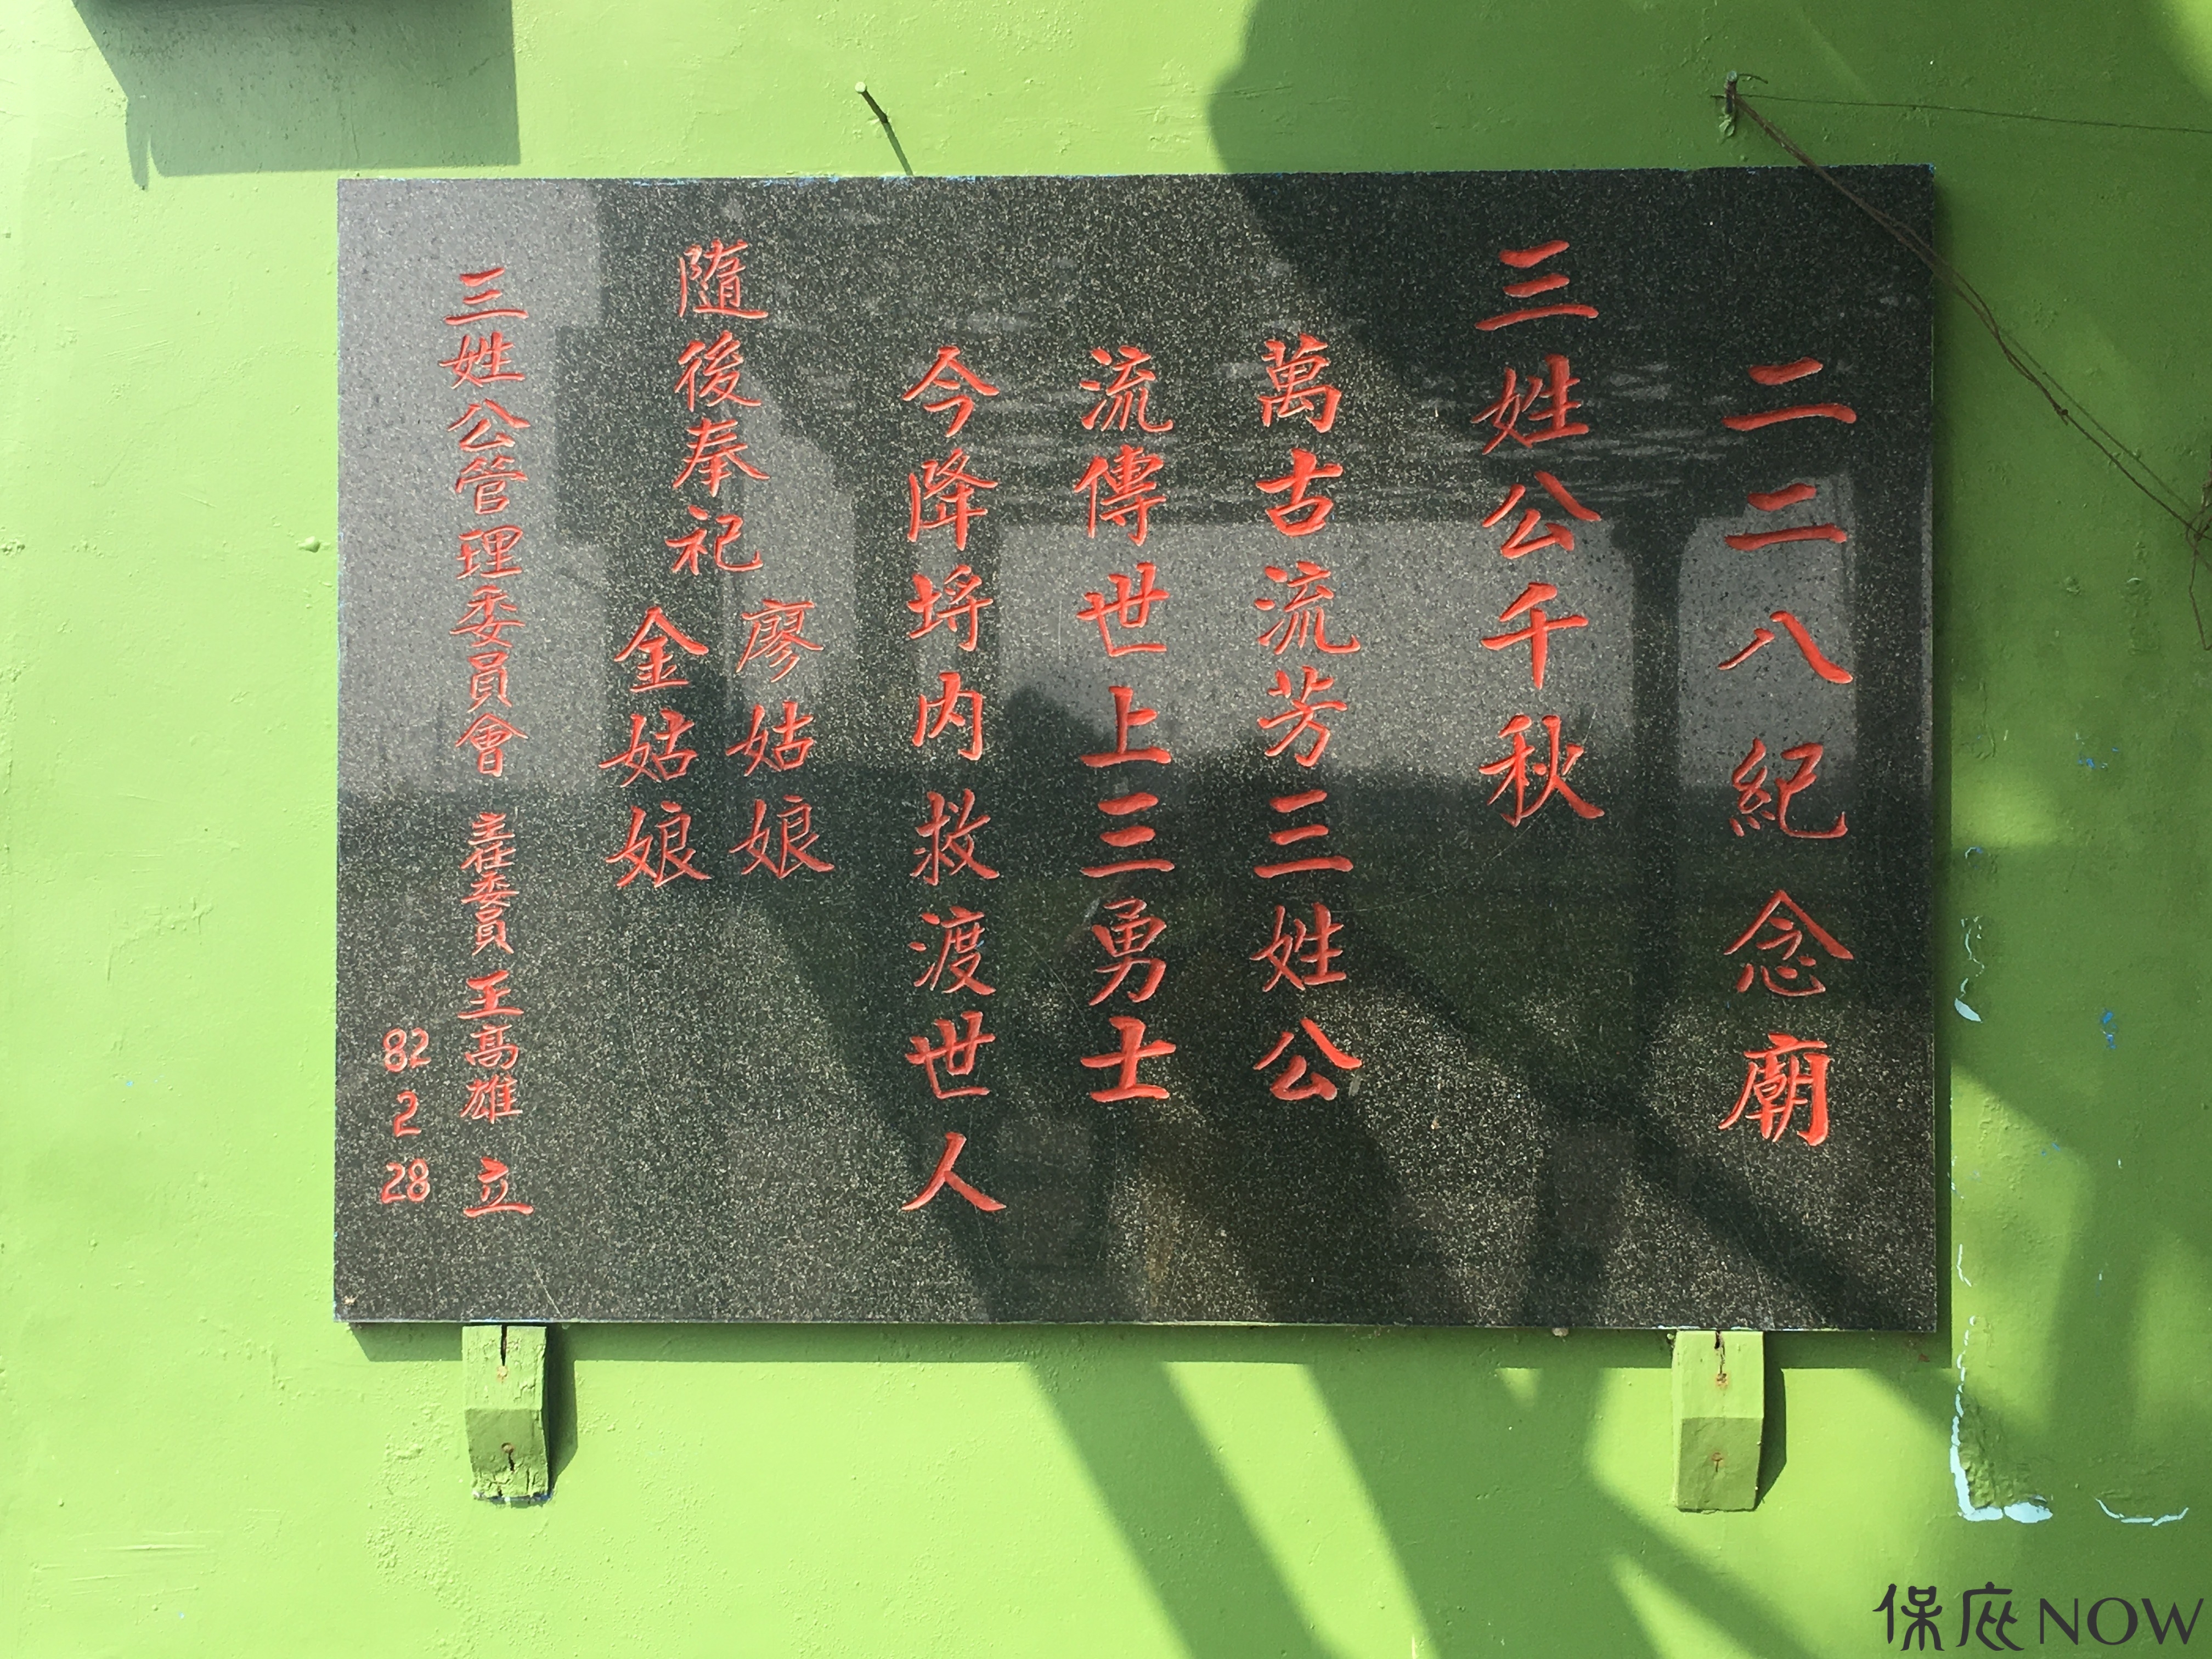 二二八紀念廟
三姓公千秋
萬古流芳三姓公
流傳世上三勇士
今降埒内救渡世人
隨後奉祀
廖姑娘
金姑娘
三姓公管理委員會 主任委員 王髙雄 立
82 2 28
保庇NOW